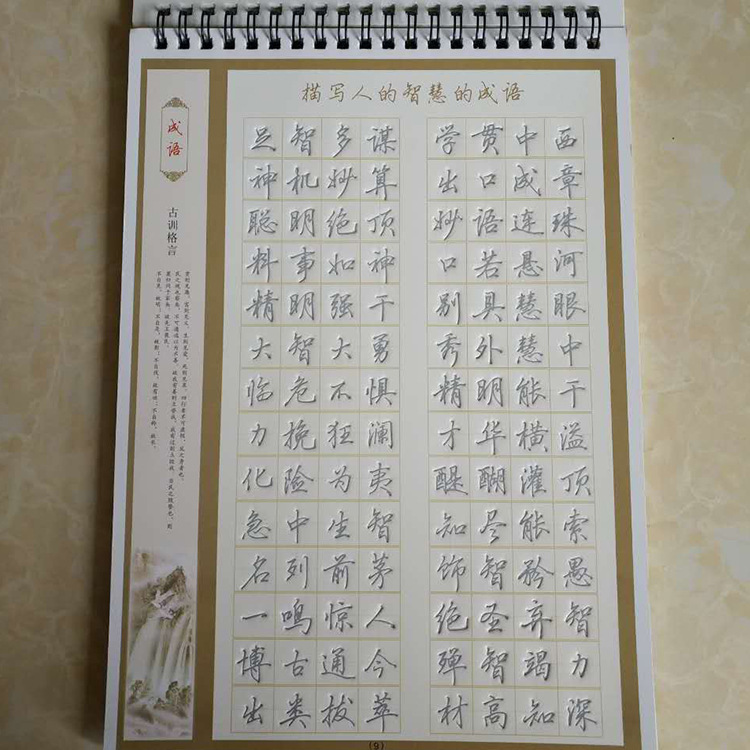 描写人的智慧的成语
成语
古训格言
足智多谋
神机妙算
聪明绝顶
料事如神
精明强干
大智大勇
临危不惧
力挽狂澜
化险为夷
急中生智
名列前茅
一鸣惊人
博古通今
出类拔萃
学贯中西
出口成章
妙语连珠
口若悬河
别具慧眼
秀外慧中
精明能干
才华横溢
醍醐灌顶
知尽能索
饰智矜愚
绝圣弃智
殚智竭力
材高知深
(9)